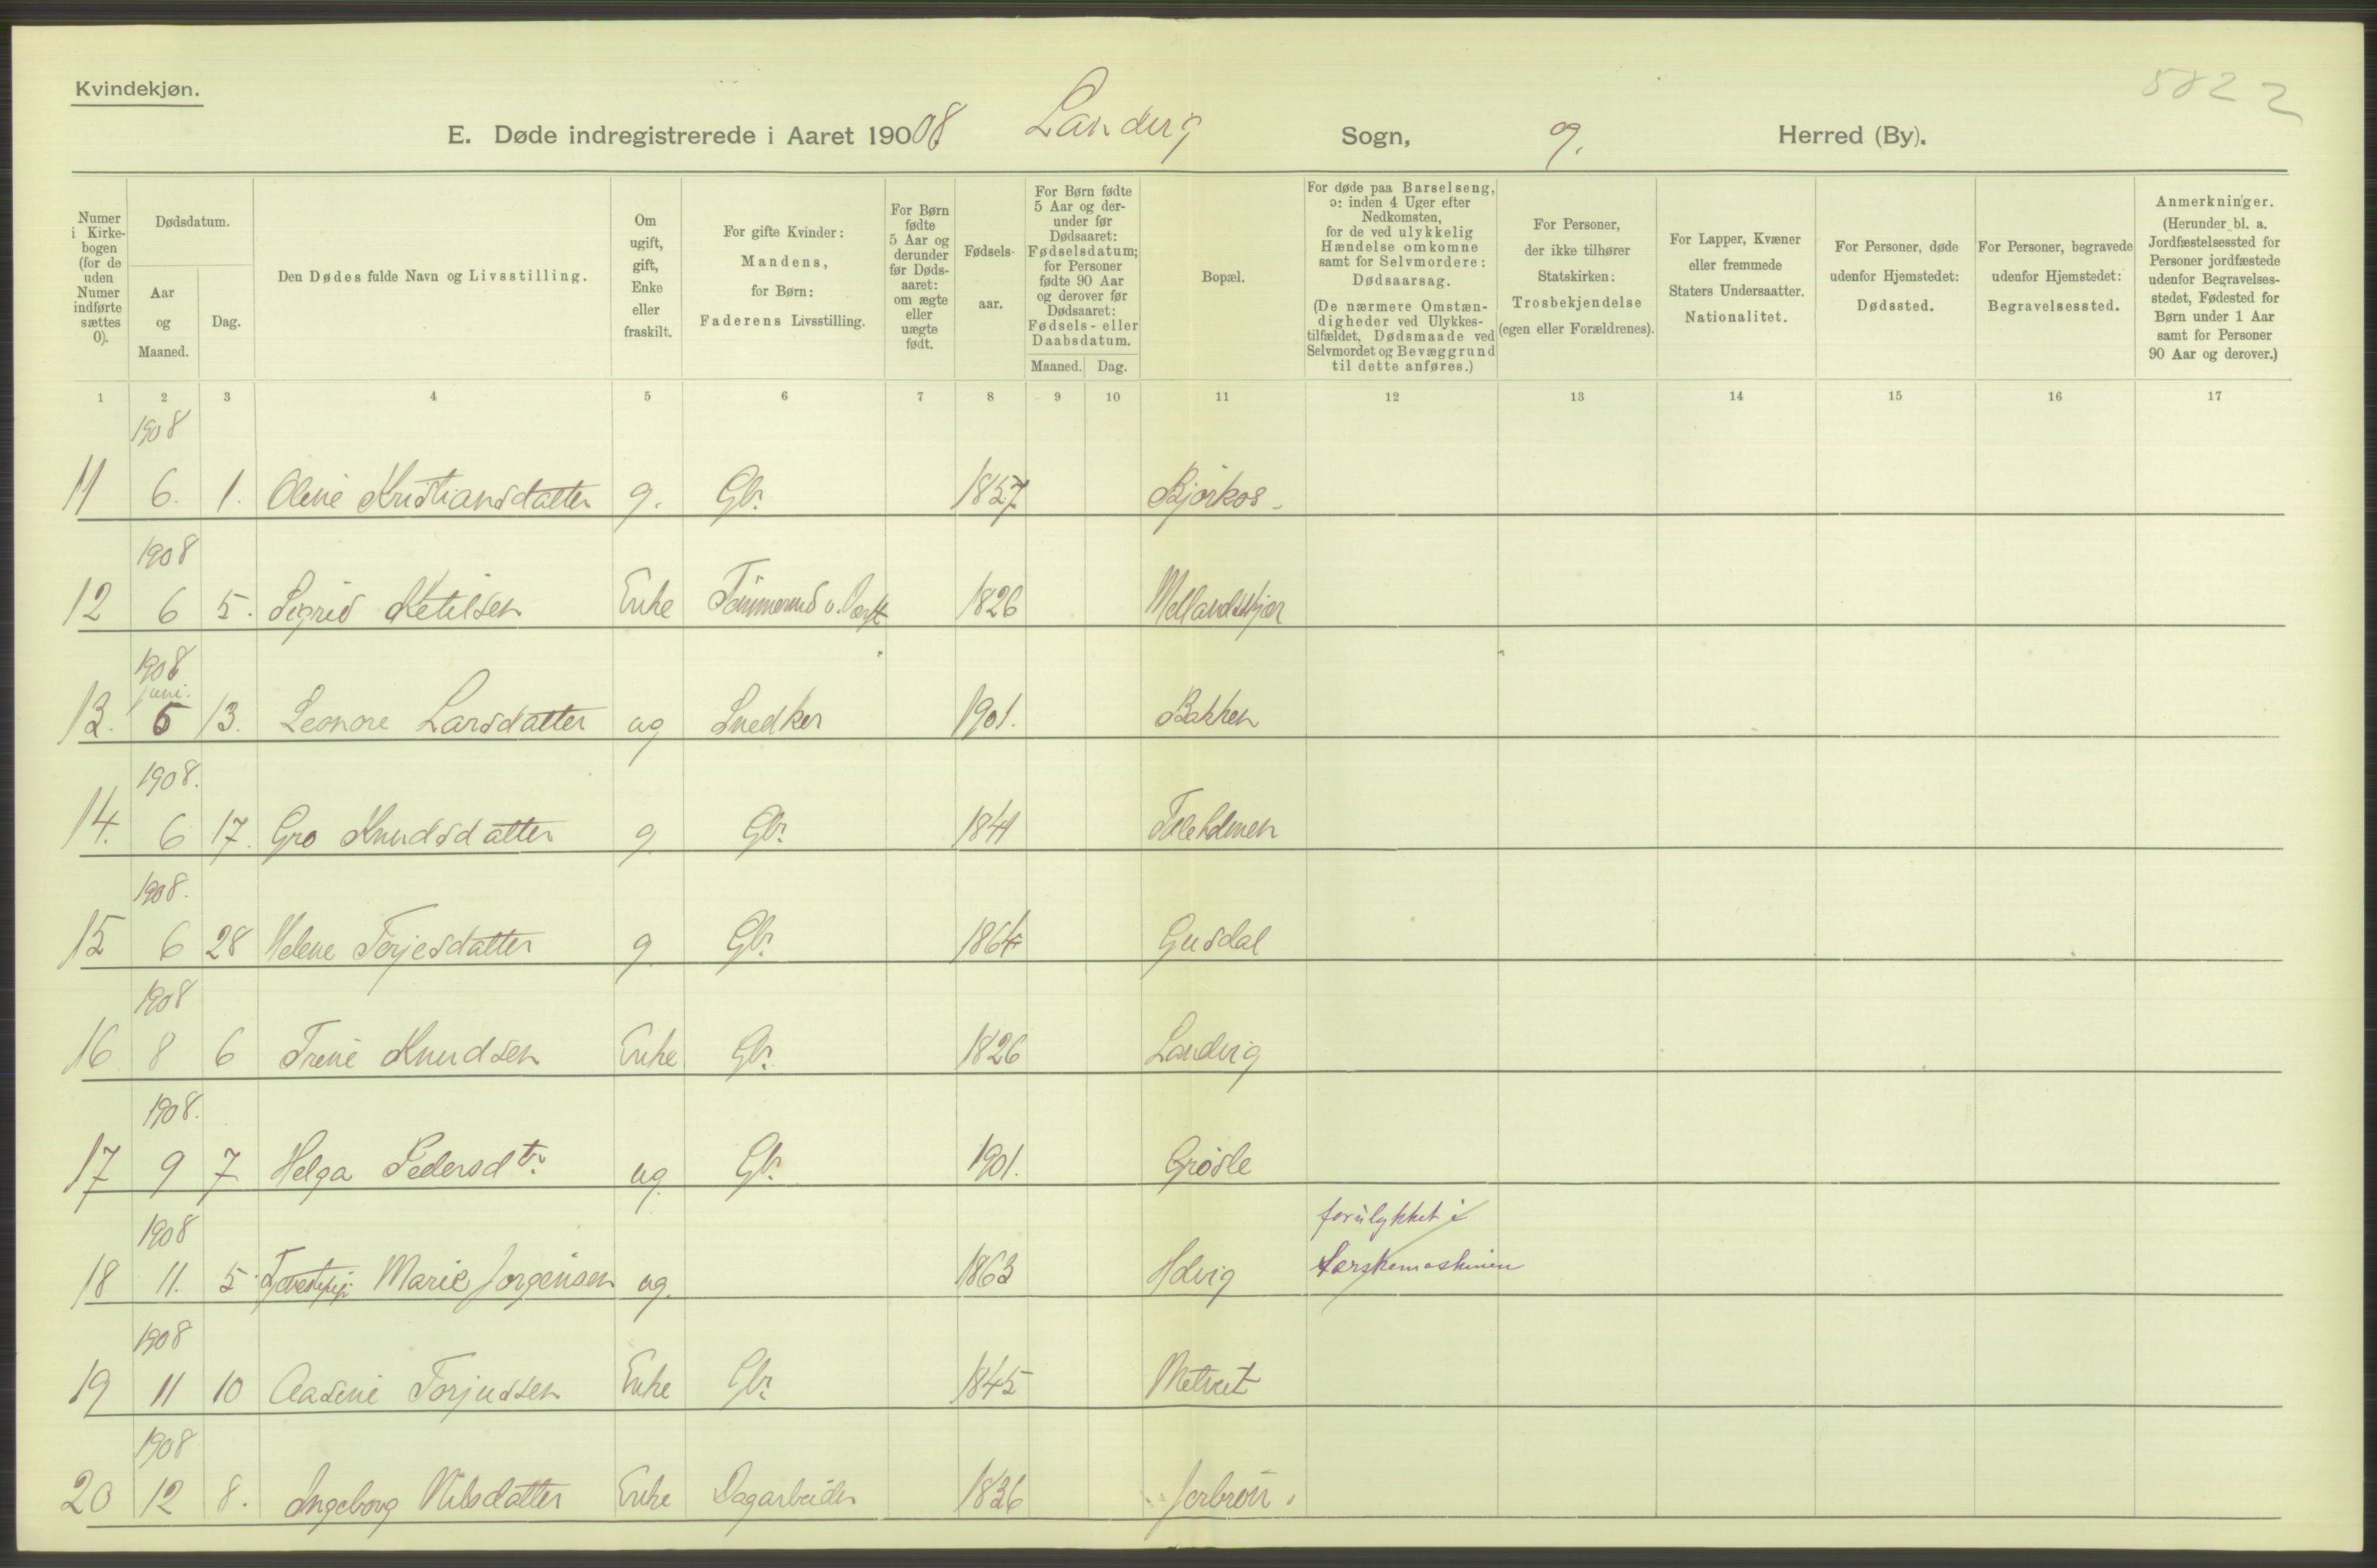 Kvindekjøn.
5822
E. Døde indregistrerede i Aaret 19008 Landvig Sogn, g. Herred (By).
Numer i Kirkebogen (for de uden Numer indførte sættes 0).
Dødsdatum.
Aar og Maaned.
Dag.
Den Dødes fulde Navn og Livsstilling.
Om ugift, gift, Enke eller fraskilt.
For gifte Kvinder: Mandens, for Børn: Faderens Livsstilling.
For Børn fødte 5 Aar og derunder før Dødsaaret: om ægte eller uægte født.
Fødselsaar.
For Børn fødte 5 Aar og derunder før Dødsaaret: Fødselsdatum; for Personer fødte 90 Aar og derover før Dødsaaret: Fødsels- eller Daabsdatum.
Maaned. Dag.
Bopæl.
For døde paa Barselseng, ɔ: inden 4 Uger efter Nedkomsten, for de ved ulykkelig Hændelse omkomne samt for Selvmordere: Dødsaarsag.
(De nærmere Omstændigheder ved Ulykkestilfældet, Dødsmaade ved Selvmordet og Bevæggrund til dette anføres.)
For Personer, der ikke tilhører Statskirken: Trosbekjendelse (egen eller Forældrenes).
For Lapper, Kvæner eller fremmede Staters Undersaatter. Nationalitet.
For Personer, døde udenfor Hjemstedet: Dødssted.
For Personer, begravede udenfor Hjemstedet: Begravelsessted.
Anmerkninger.
(Herunder bl. a. Jordfæstelsessted for Personer jordfæstede udenfor Begravelsesstedet, Fødested for Børn under 1 Aar samt for Personer 90 Aar og derover.)
1 2 3 4 5 6 7 8 9 10 11 12 13 14 15 16 17
1908
11 6. 1. Olene Kristiansdatter g. Gbr. 1857 Bjørkos
1908
12 6 5. Sigrid Ketilsen Enke 1826 Mollandskjær
1908
juni.
13. 6 13. Leonore Larsdatter ug Snedker 1901. Bakken
1908.
14. 6 17. Gro Knudsdatter g Gbr. 1841
1908.
15 6 28 Helene Terjesdatter g Gbr. 1864 Gusdal
1908
16 8 6 Trine Knudsen Enke Gbr. 1826 Landvig
1908.
17 9 7 Helga Pedersdtr. ug. Gbr. 1901. Grøsle
1908 forulykket i
18 11. 5 Marie Jørgensen ug. 1863 Hdvig tærskemaskinen
1908
19 11 10 Aasine Torjussen Enke Gbr. 1845
1908
20 12 8. Ingeborg Nilsdatter Enke Dagarbeider 1836